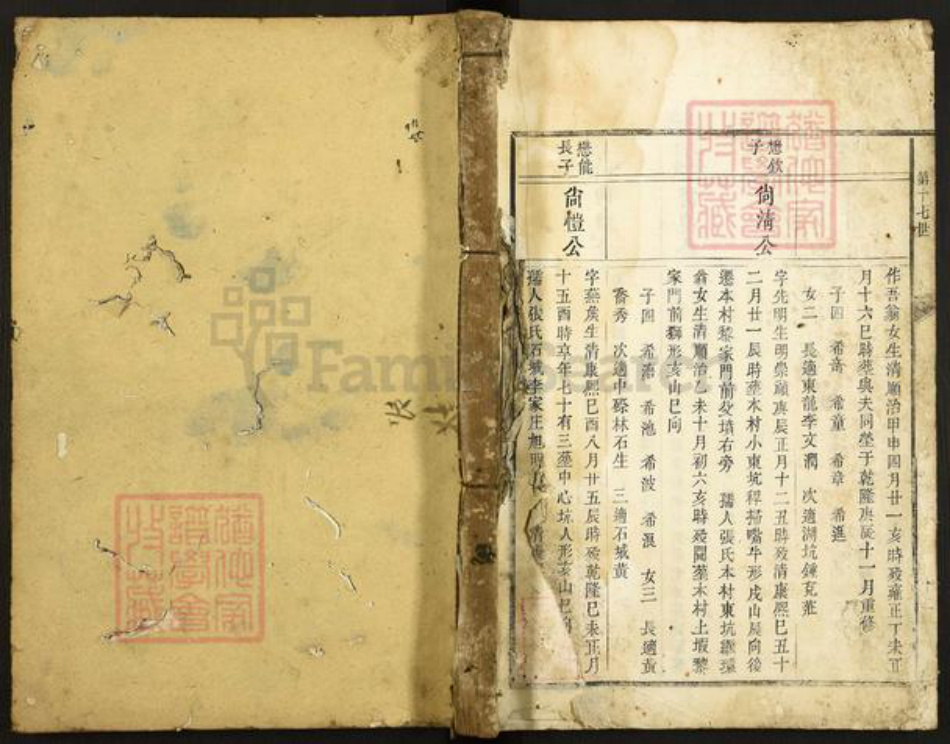 第十七世
作吾翁女生清順治甲申四月廿一亥時歿雍正丁未正
月十六巳時葬與夫同塋于乾隆庚辰十一月重修
子四 希奇 希童 希章 希進
女二 長適東龍李文潤 次適湖坑鍾克莊
懋欽
子
尙淸公
字先明生明崇禎庚辰正月十二丑時歿清康熙己丑十
二月廿一辰時葬本村小東坑稈掃嘴牛形戌山辰向後
遷本村黎家門前父墳右旁 孺人張氏本村東坑
翁女生清順治乙未十月初六亥時歿闕葬本村上塅黎
家門前獅形亥山巳向
子四 希添 希池 希波 希混 女三 長適黃
喬秀 次適中磜林石生 三適石城黃
懋能
長子
尙愷公
字燕侯生清康熙己酉八月廿五辰時歿乾隆己未正月
十五酉時享年七十有三葬中心坑人形亥山巳向
孺人張氏石城李家庄旭明
Family